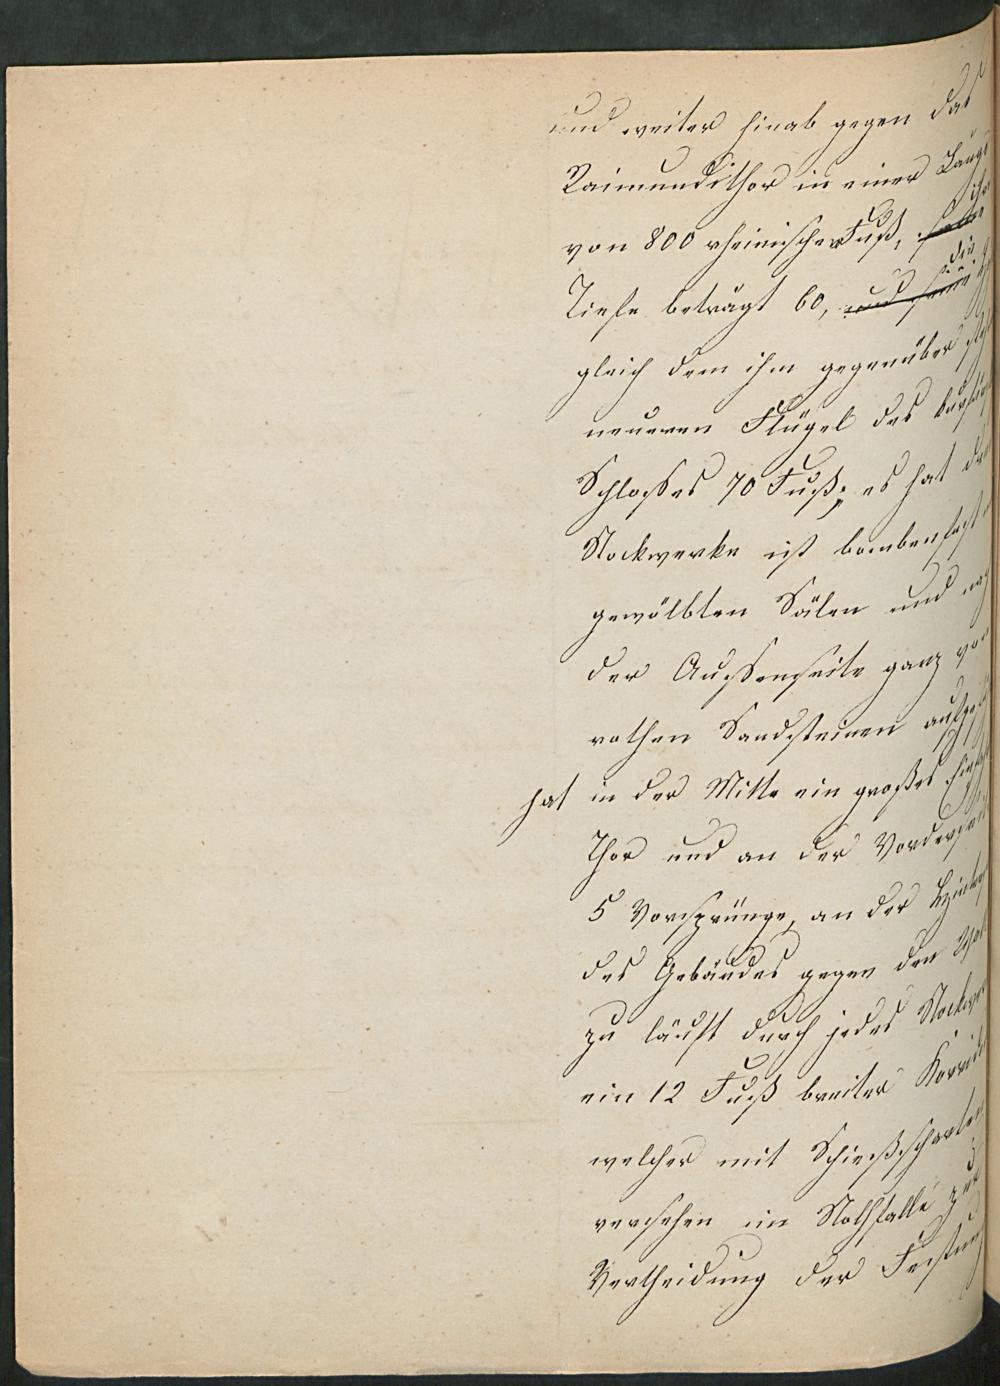 und weiter hinab gegen das
Raimundithor in einer Länge
von 800 rheinischer Fuß, seine ihre
Tiefe beträgt 60, und seine die
gleich dem ihm gegenüber
neueren Flügel des
Schlosses 70 Fuß; es hat drei
Stockwerke ist bombenfest
gewölbten Sälen und
der Aussenseite ganz von
rothen Sandsteinen
hat in der Mitte ein großes
Thor und an der
5 Vorsprünge, an der
des Gebäudes gegen den
zu läuft durch jedes
ein 12 Fuß breiter
welcher mit Schießscharten
versehen im Nothfalle zur
Vertheidung der Festung